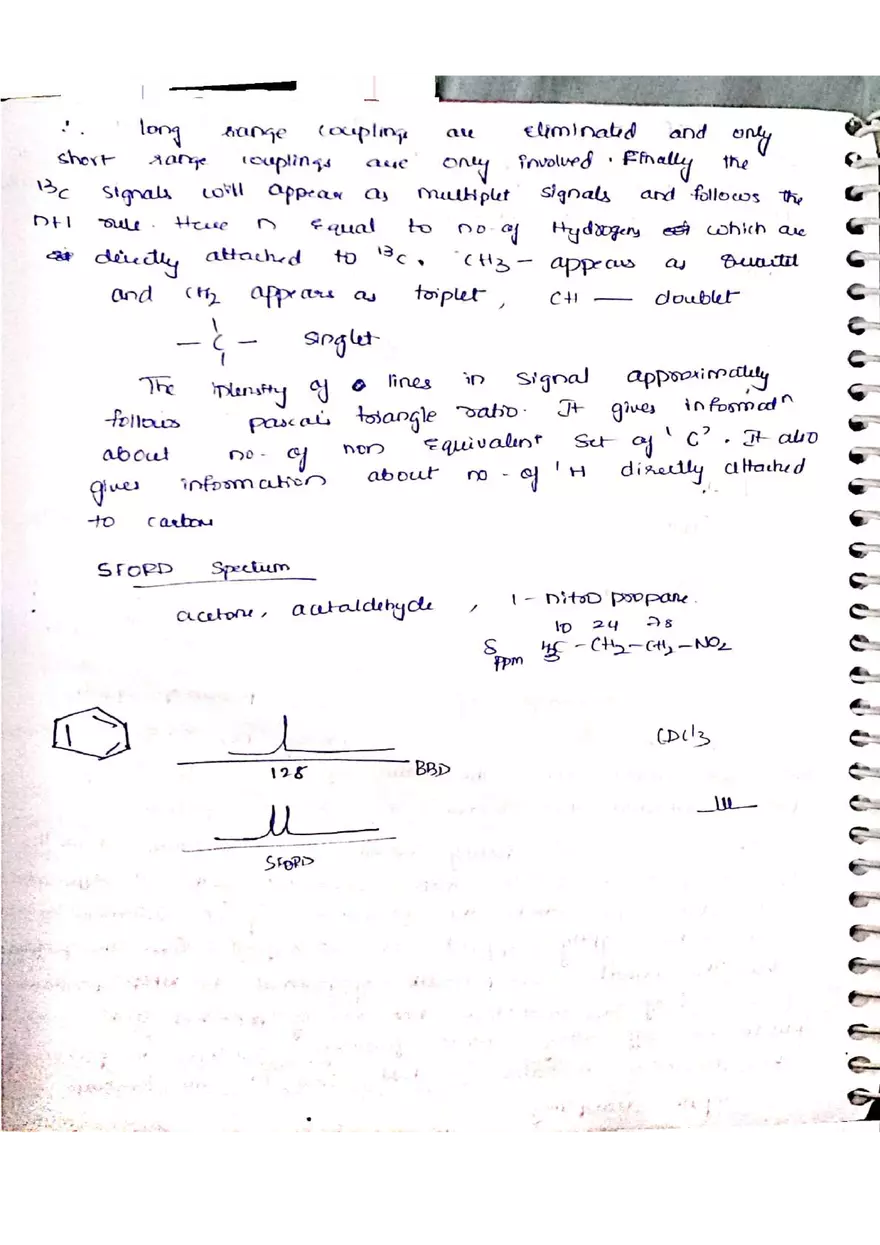 ∴ long range couplings are eliminated and only
short range couplings are only involved. Finally the
13C signals will appear as multiplet signals and follows the
n+1 rule. Here n Equal to no. of Hydrogens which are
directly attached to 13C. CH3 – appears as Quartet
and CH2 appears as triplet, CH — doublet
– C – singlet
The intensity of lines in signal approximately
follows pascal's triangle ratio. It gives informatn
about no. of non Equivalent Set of 'C'. It also
gives information about no. of 1H directly attached
to carbon
SFORD Spectum
acetone, acetaldehyde, 1-nitro propane.
10 24 78
δ ppm H3C – CH2 – CH2 – NO2
CDCl3
128 BBD
SFORD